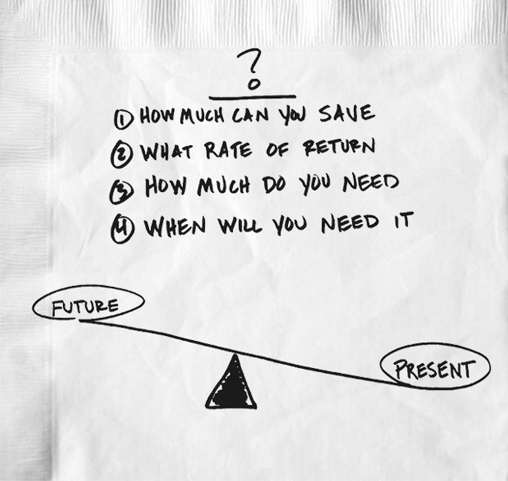 ?
① HOW MUCH CAN YOU SAVE
② WHAT RATE OF RETURN
③ HOW MUCH DO YOU NEED
④ WHEN WILL YOU NEED IT
FUTURE
PRESENT